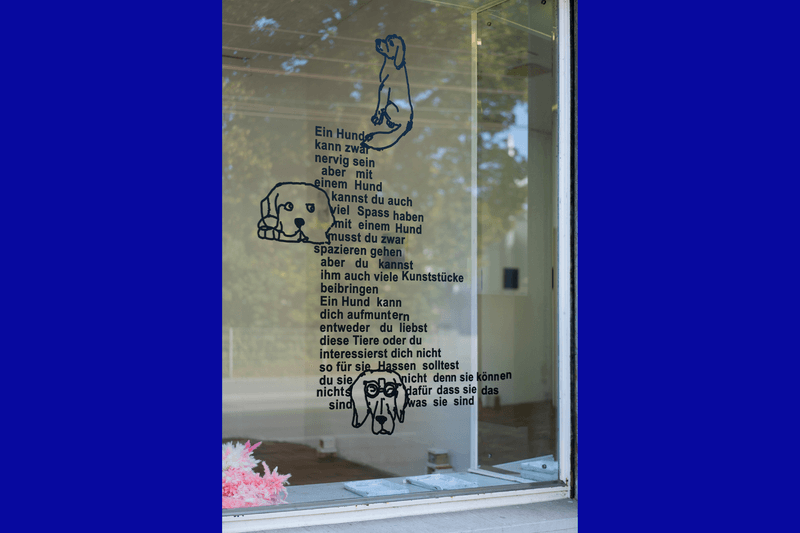 Ein Hund
kann zwar
nervig sein
aber mit
einem Hund
kannst du auch
viel Spass haben
mit einem Hund
musst du zwar
spazieren gehen
aber du kannst
ihm auch viele Kunststücke
beibringen
Ein Hund kann
dich aufmuntern
entweder du liebst
diese Tiere oder du
interessierst dich nicht
so für sie Hassen solltest
du sie nicht denn sie können
nichts dafür dass sie das
sind was sie sind